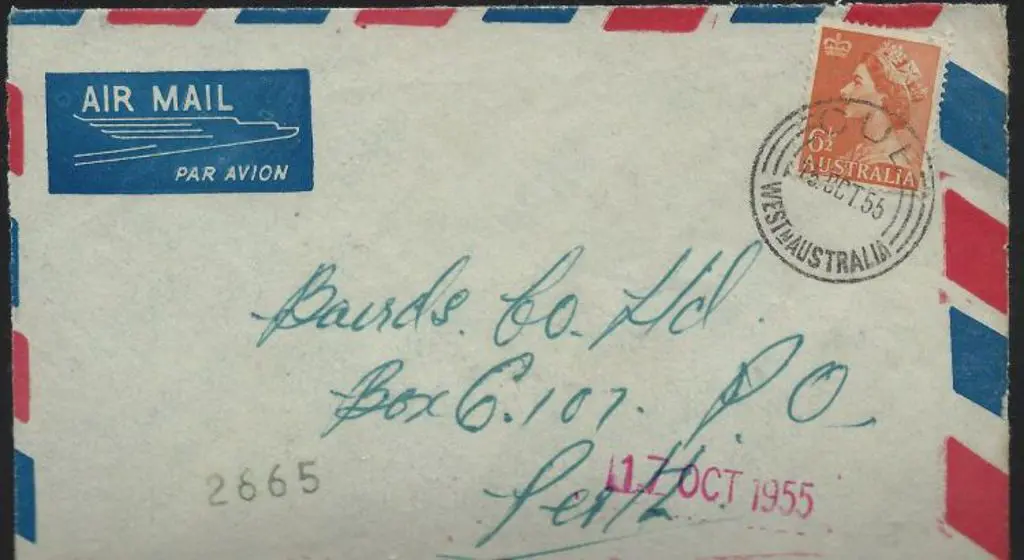 AIR MAIL
PAR AVION
6½
AUSTRALIA
CUE
OCT 55
WESTN AUSTRALIA
Bairds. Co. Ltd.
Box C.107. P.O
Perth
17 OCT 1955
2665